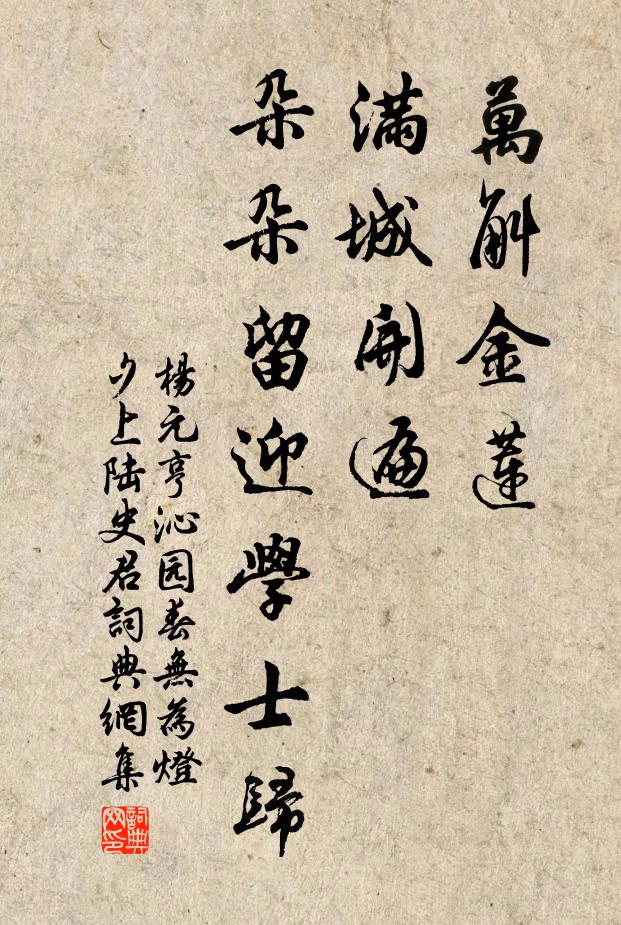 萬斛金蓮
滿城開遍
朵朵留迎學士歸
楊元亨沁园春無為燈
夕上陆史君詞典網集
詞典网印